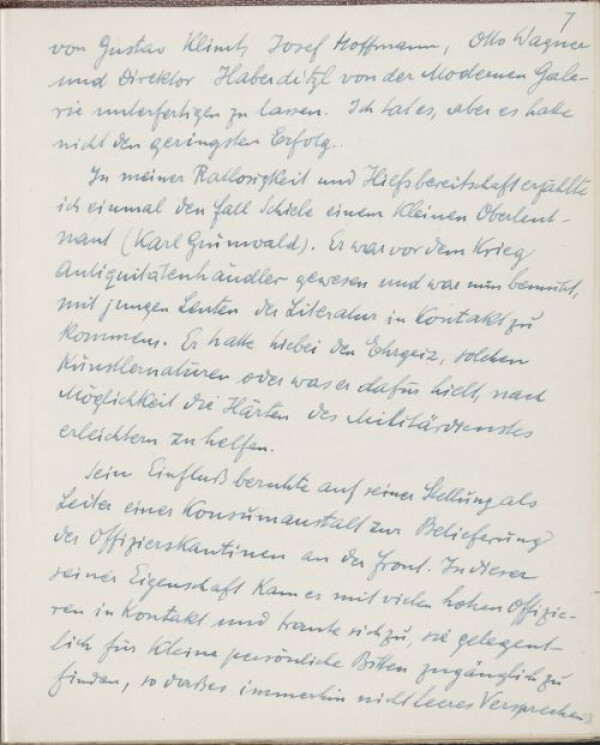 7
von Gustav Klimt, Josef Hoffmann, Otto Wagner
und Direktor Haberditzl von der Modernen Gale-
rie unterfertigen zu lassen. Ich tat es, aber es hatte
nicht den geringsten Erfolg.
In meiner Ratlosigkeit und Hilfsbereitschaft erzählte
ich einmal den Fall Schiele einem kleinen Oberleut-
nant (Karl Grünwald). Er war vor dem Krieg
Antiquitätenhändler gewesen und war nun bemüht,
mit jungen Leuten der Literatur in Kontakt zu
kommen. Er hatte hiebei den Ehrgeiz, solchen
Künstlernaturen oder was er dafür hielt, nach
Möglichkeit die Härten des Militärdienstes
erleichtern zu helfen.
Sein Einfluß beruhte auf seiner Stellung als
Leiter einer Konsumanstalt zur Belieferung
der Offizierskantinen an der Front. In dieser
seiner Eigenschaft kam er mit vielen hohen Offizie-
ren in Kontakt und traute sich zu, sie gelegent-
lich für kleine persönliche Bitten zugänglich zu
finden, so daß es immerhin nicht leeres Versprechen